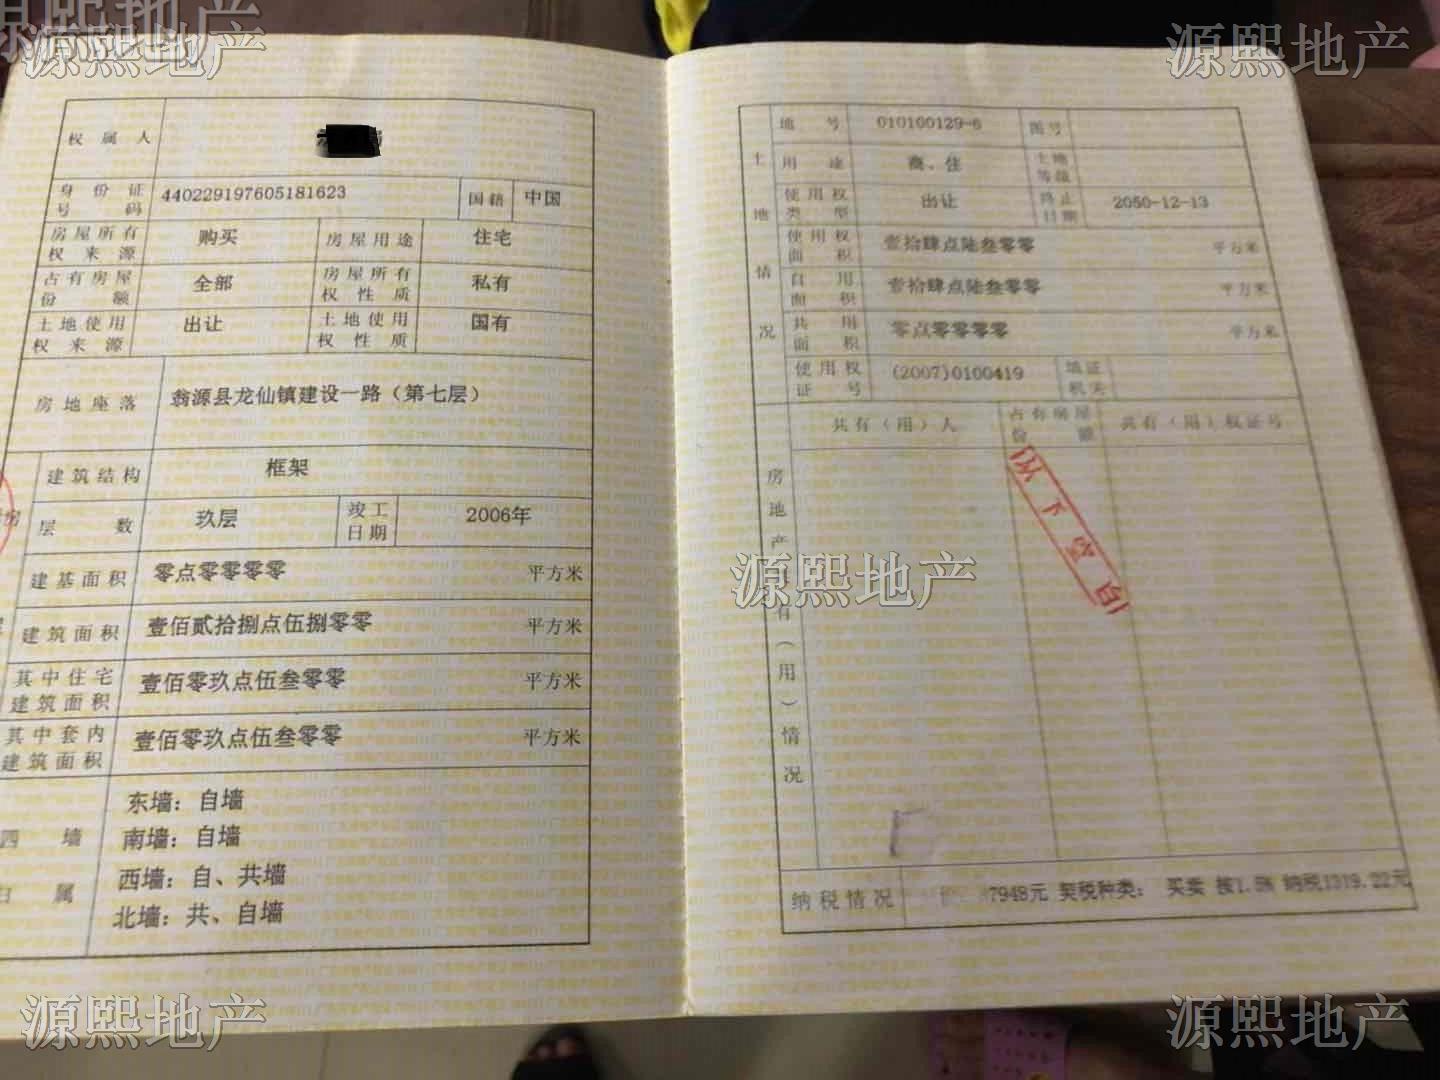 源熙地产
源熙地产
权属人
身份证号码 440229197605181623 国籍 中国
房屋所有权来源 购买 房屋用途 住宅
占有房屋份额 全部 房屋所有权性质 私有
土地使用权来源 出让 土地使用权性质 国有
房地座落 翁源县龙仙镇建设一路（第七层）
建筑结构 框架
层数 玖层 竣工日期 2006年
建基面积 零点零零零零 平方米
建筑面积 壹佰贰拾捌点伍捌零零 平方米
其中住宅建筑面积 壹佰零玖点伍叁零零 平方米
其中套内建筑面积 壹佰零玖点伍叁零零 平方米
四墙归属
东墙：自墙
南墙：自墙
西墙：自、共墙
北墙：共、自墙
土地情况
地号 010100129-6 图号
用途 商、住 土地等级
使用权类型 出让 终止日期 2050-12-13
使用权面积 壹拾肆点陆叁零零 平方米
自用面积 壹拾肆点陆叁零零 平方米
共用面积 零点零零零零 平方米
使用权证号 (2007)0100419 填证机关
共有（用）人 占有房屋份额 共有（用）权证号
以下空白
源熙地产
纳税情况 7948元 契税种类： 买卖 按1.5% 纳税1319.22元
源熙地产
源熙地产